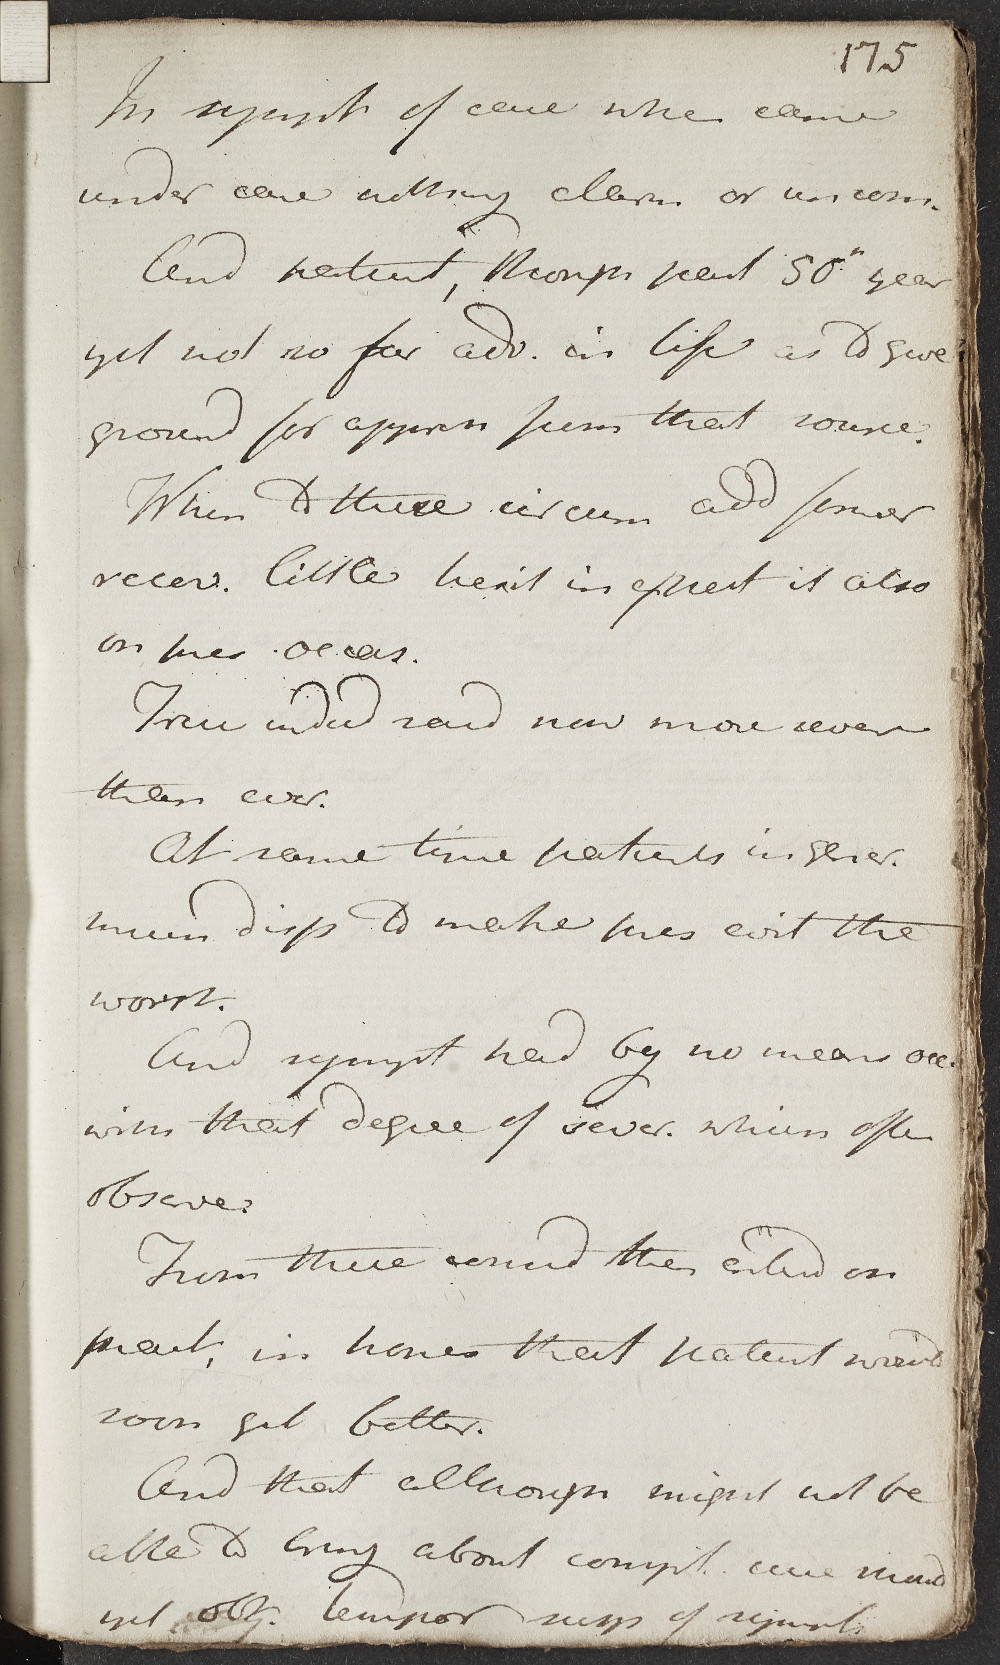 175
In sympt of case when came
under care nothing alarm or uncom.
And patient, though past 50th year
yet not so far adv. in life as to give
ground for appreh from that source.
When to these circum add former
recov. little hesit in expect it also
on pres occas.
True indeed said now more sever
than ever.
At same time patients in gener.
much disp to make pres exist the
worst.
And sympt had by no means occ.
with that degree of sever. which often
observe
From these consid then enterd on
treat, in hopes that patient would
soon get better.
And that although might not be
able to bring about compl. cure
yet obt. tempor susp of sympts